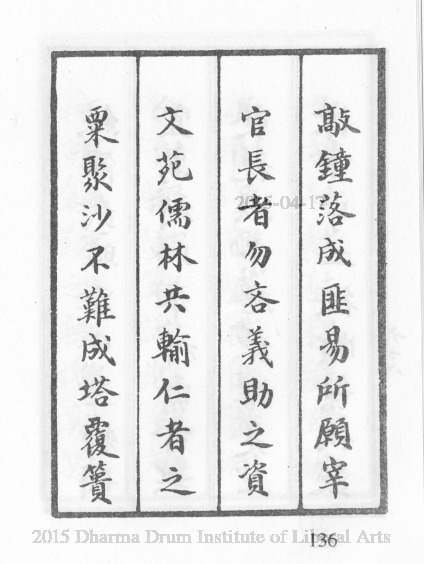 敲鐘落成匪易所願宰
官長者勿吝義助之資
文苑儒林共輸仁者之
粟聚沙不難成塔覆簣
2015 Dharma Drum Institute of Liberal Arts
136